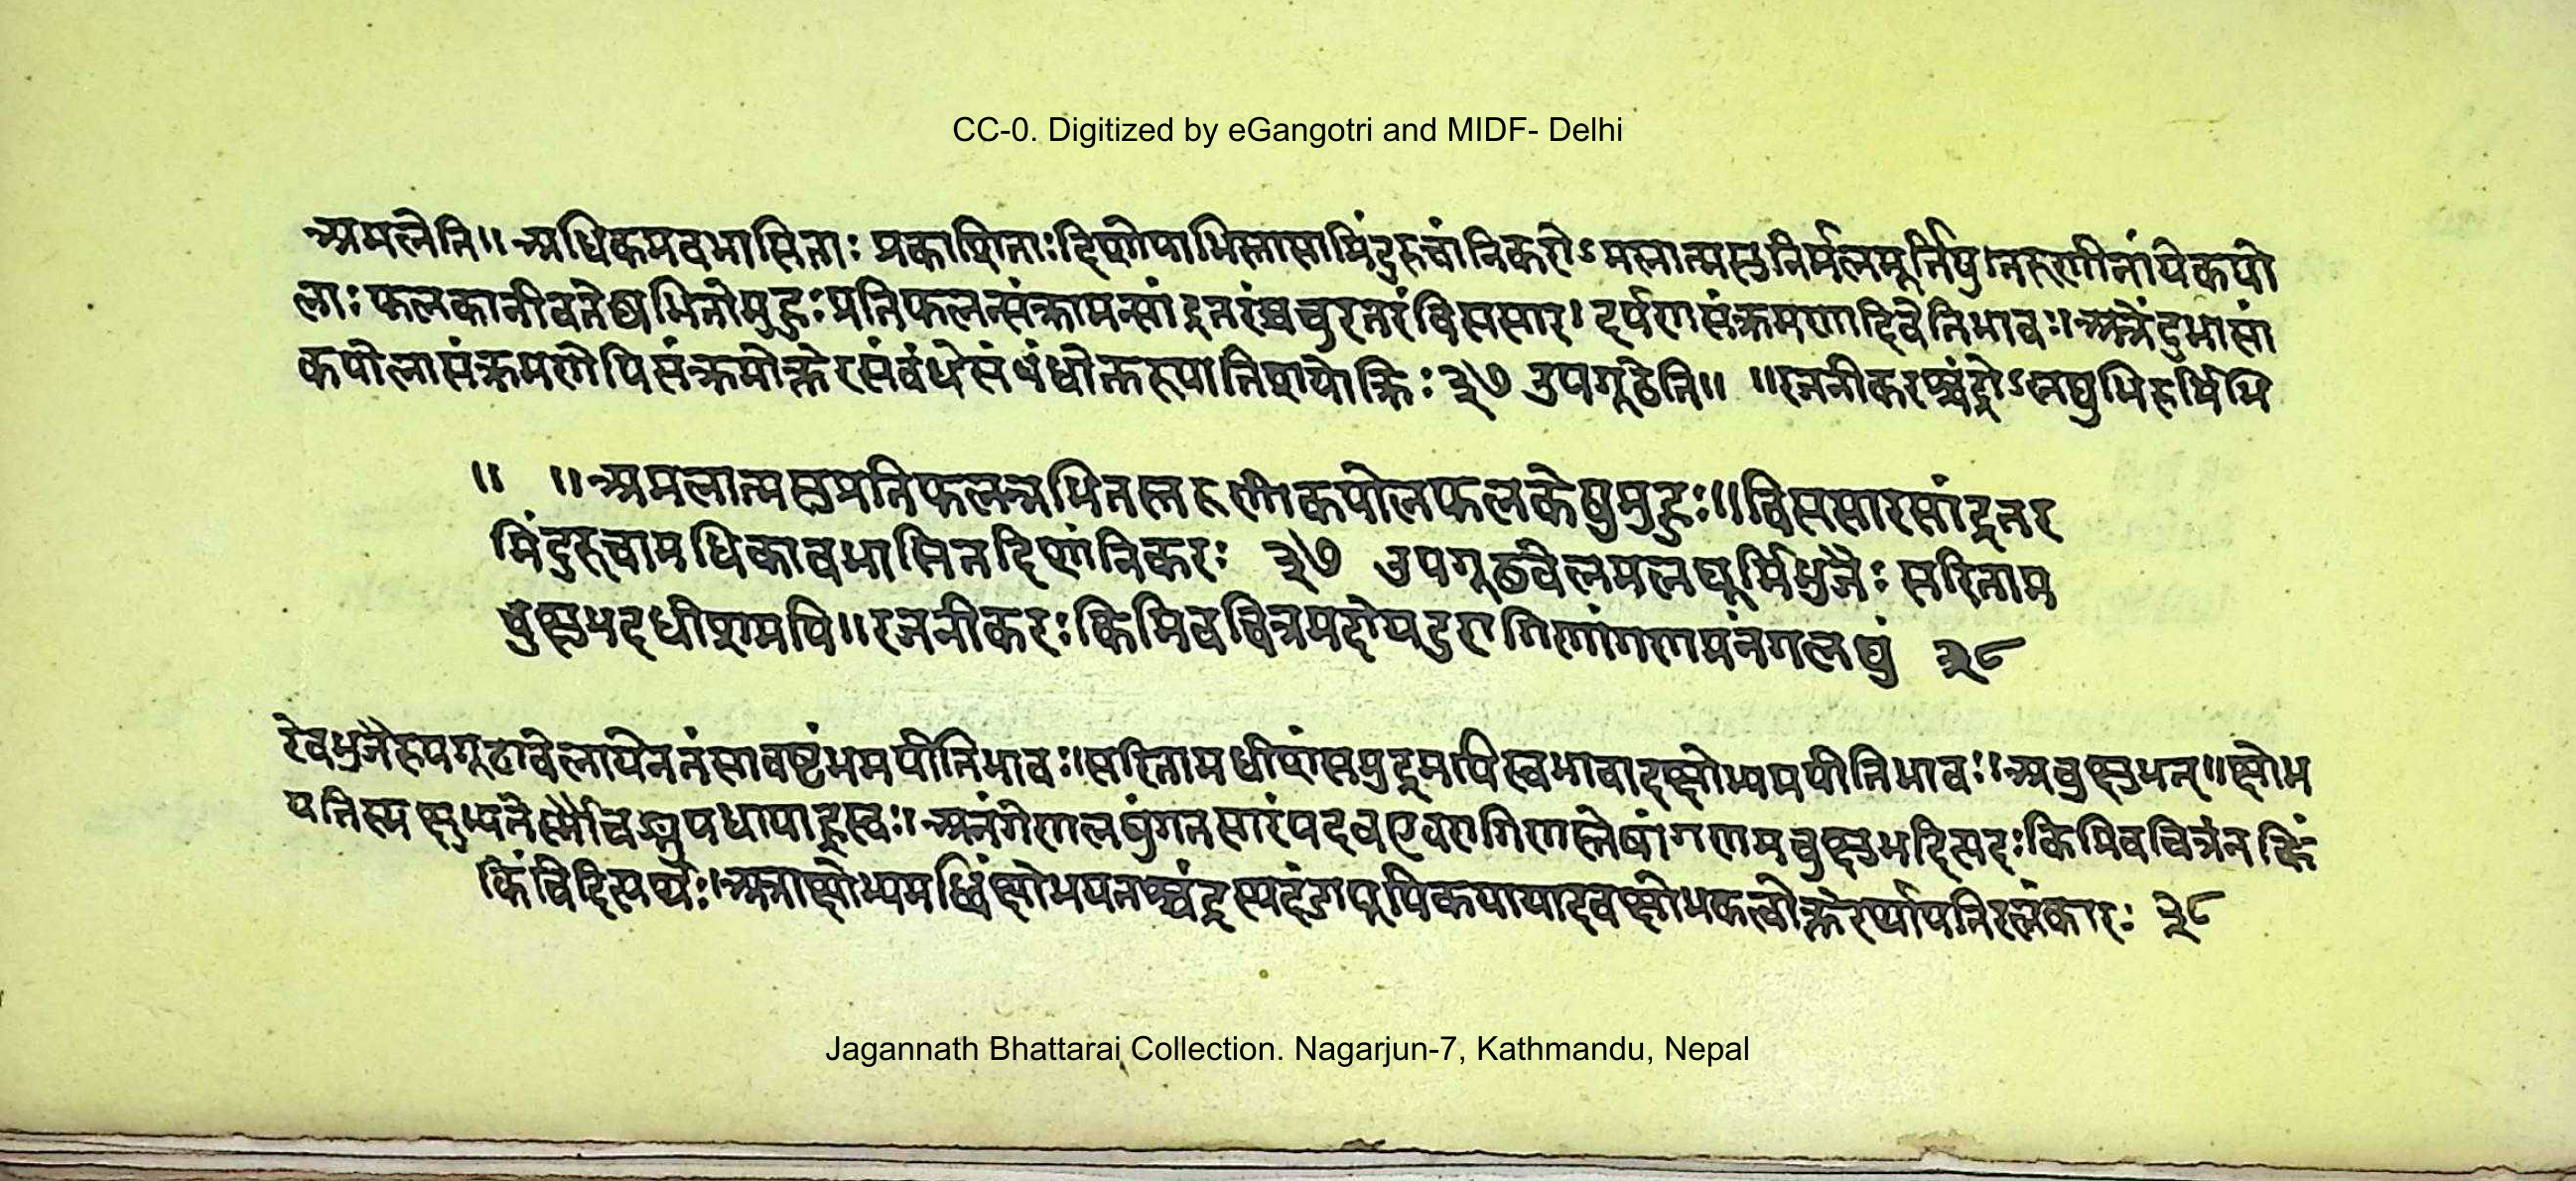 CC-0. Digitized by eGangotri and MIDF- Delhi
अमलेति॥ अधिकमवभासिताः प्रकाशिताः दिशोयाभिस्तासामिंदुरुचांनिकरोऽमलात्मसुनिर्मलमूर्तिषु।तरुणीनांयेकपो
लाः फलकानीवतेष्वभितोमुहुः प्रतिफलन्संक्रामन्सांद्रतरंप्रचुरतरंविससार। दर्पणसंक्रमणादिवेतिभावः॥अत्रेंदुभासां
कपोलासंक्रमणेपिसंक्रमोक्तेरसंबंधेसंबंधोक्तरूपातिशयोक्तिः ३७ उपगूढेति॥ ॥रजनीकरश्चंद्रोऽलघुभिरूर्मिभि
॥ ॥अमलात्मसुप्रतिफलन्नभितस्तरुणीकपोलफलकेषुमुहुः॥विससारसांद्रतर
मिंदुरुचामधिकावभासितदिशांनिकरः ३७ उपगूढवेलमलघूर्मिभुजैः सरिताम
चुक्षुभदधीशमपि॥रजनीकरःकिमिवचित्रमदोयदुरागिणांगणमनंगलघुं ३८
रेवभुजैरुपगूढावेलायेनतंसावष्टंभमपीतिभावः॥सरितामधीशंसमुद्रमपिस्वभावादक्षोभ्यमपीतिभावः॥अचुक्षुभत्॥क्षोभ
यतिस्म क्षुभ्यतेर्णौचङ्युपधायाह्रस्वः॥अनंगेणलघुंगतसारंयदवएवरागिणस्तेषांगणमचुक्षुभदितियदः किमिवचित्रंन किं
किंचिदित्यर्थः॥अत्राक्षोभ्यमब्धिंक्षोभयतश्चंद्रस्यदंडापूपिकयायादवक्षोभकत्वोक्तेरर्थापत्तिरलंकारः ३८
Jagannath Bhattarai Collection. Nagarjun-7, Kathmandu, Nepal